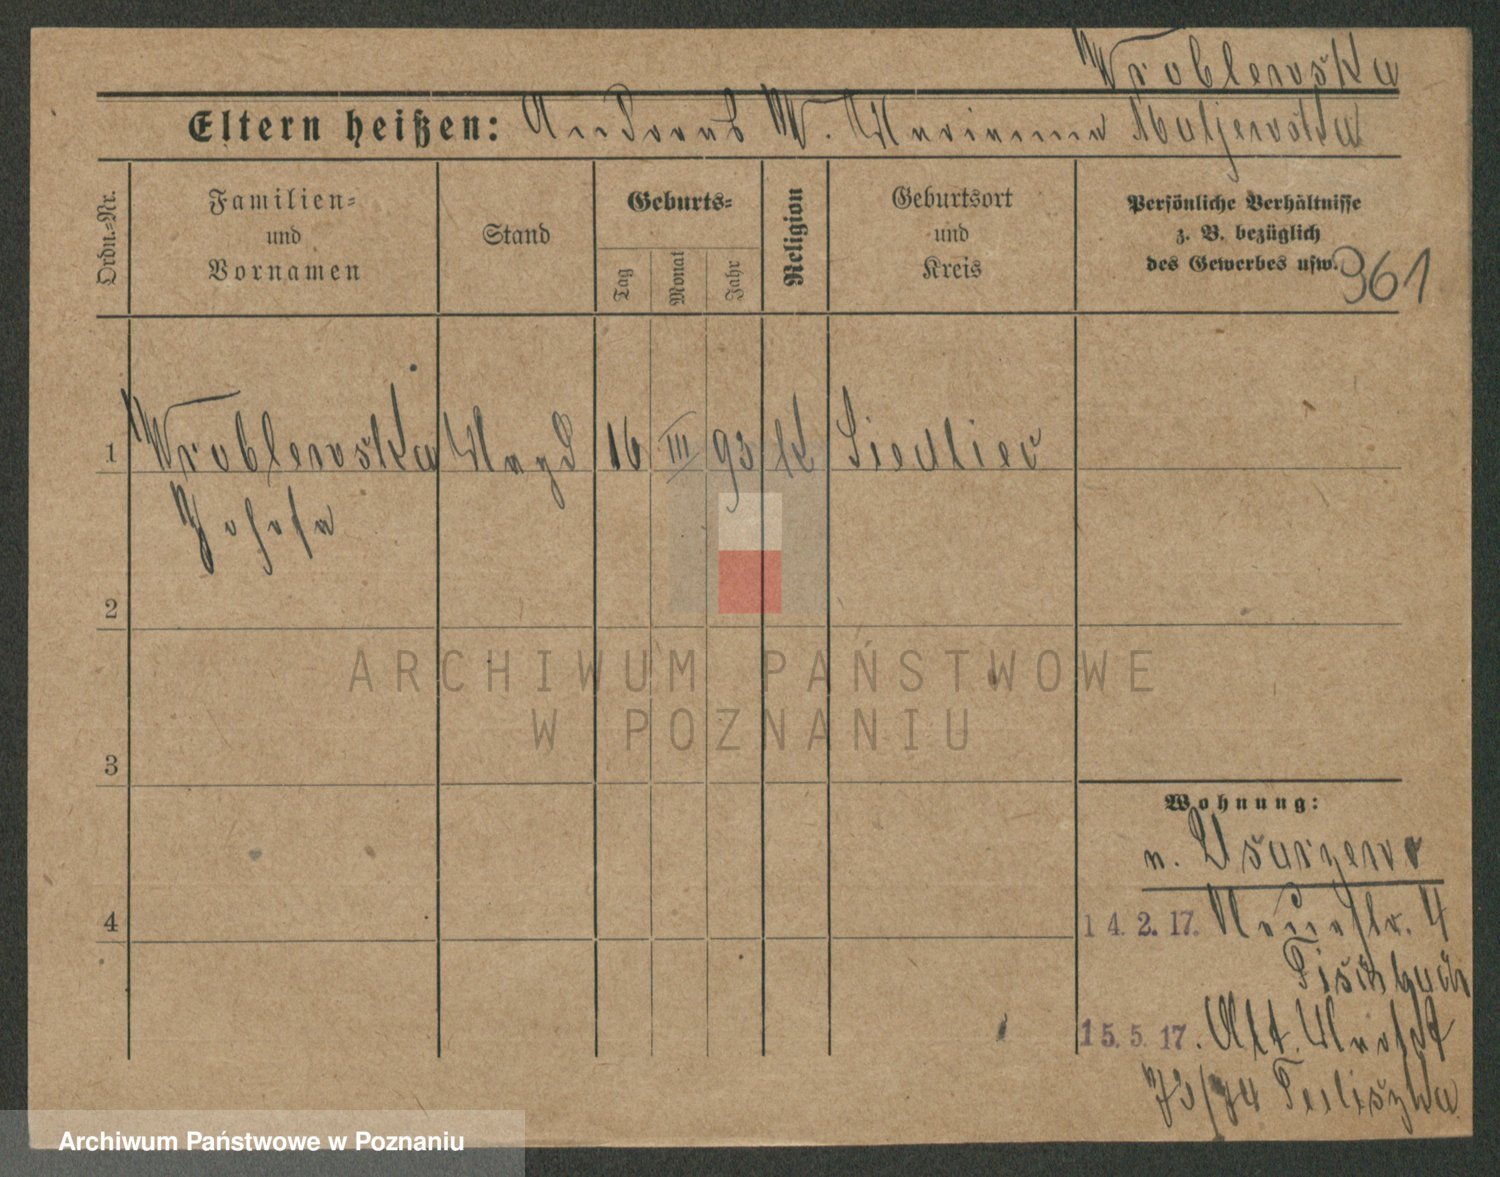 Wroblewska
Eltern heißen: Andreas W. Marianna
Ordn.-Nr.
Familien-
und
Vornamen
Stand
Geburts-
Tag
Monat
Jahr
Religion
Geburtsort
und
Kreis
Persönliche Verhältnisse
z. B. bezüglich
des Gewerbes usw.
961
1 Wroblewska Magd 16 III 93 K Siedliec
Josefa
2
3
4
Wohnung:
n.
14.2.17. Neuestr. 4
15.5.17. Alt. Markt
73/74
ARCHIWUM PAŃSTWOWE
W POZNANIU
Archiwum Państwowe w Poznaniu